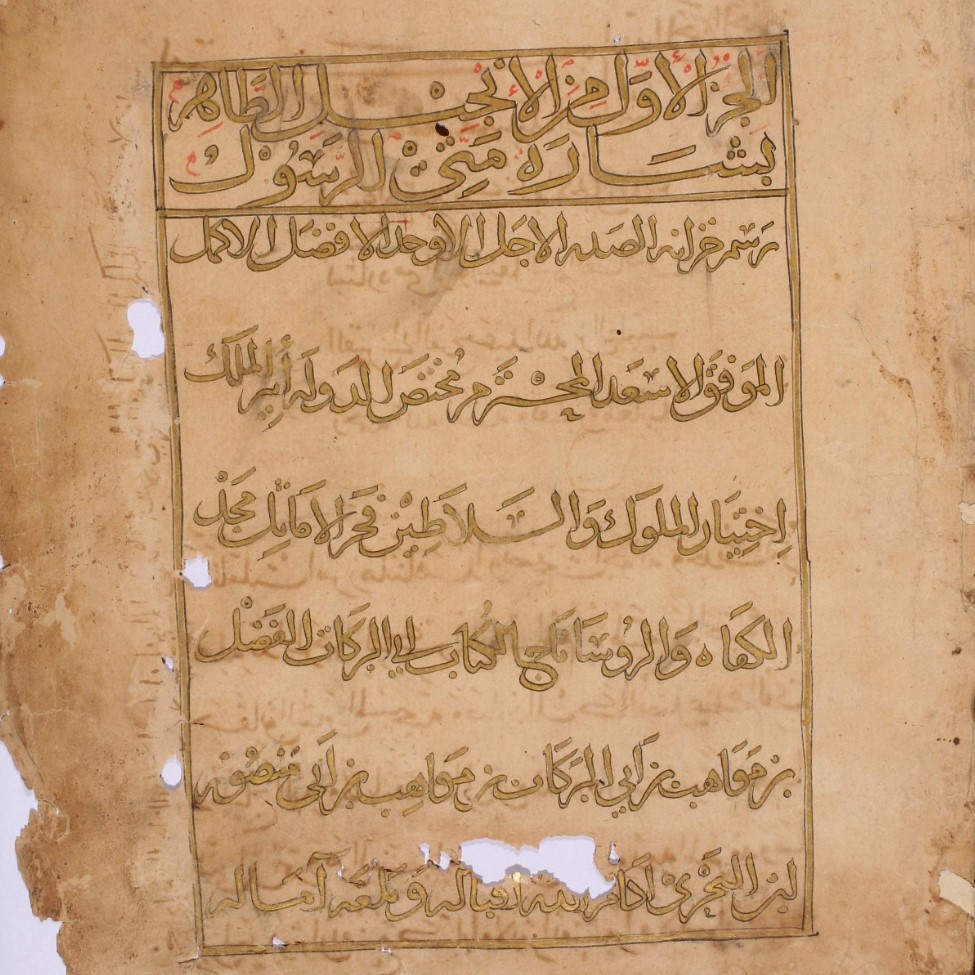 الجز الأوّل من الإنجيل الطاهر
بشارة متى الرسول
رسم خزانه الصدر الاجل الاوحد الافضل الاكمل
الموفق الاسعد المحترم مختص الدوله أمير الملك
اختيار الملوك والسلاطين فخر الاماثل مجد
الكفاه والروسا تاج الكتاب ابي البركات الفضل
بن مواهب بن ابي البركات بن مواهب بن ابي منصور
ابن البحري ادام الله اقباله وبلغه آماله